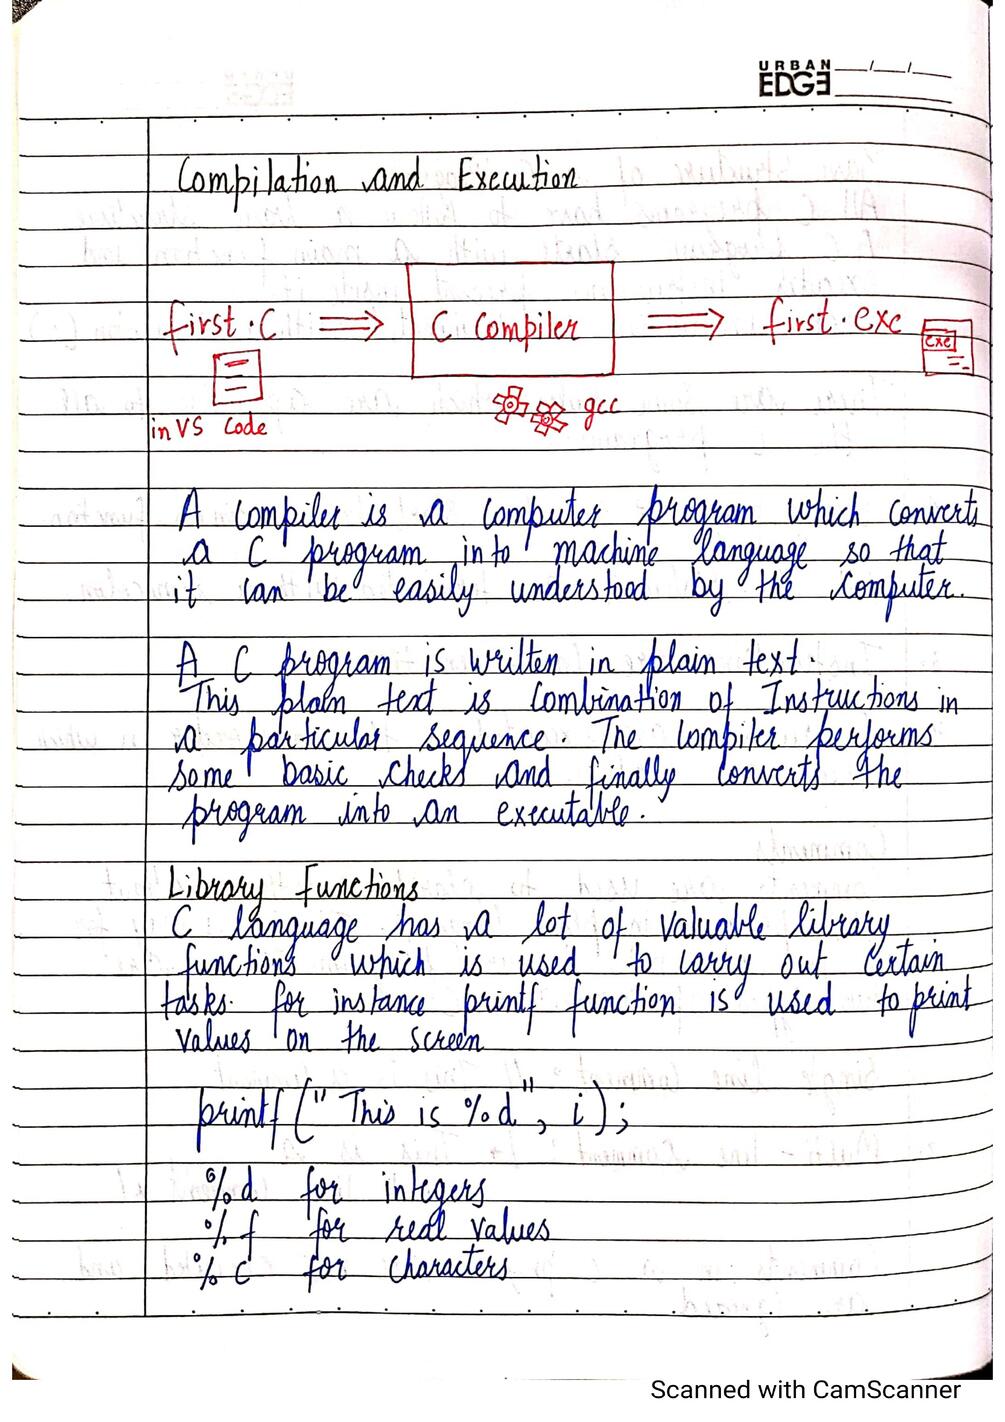 URBAN
EDGE
Compilation and Execution
first.C ⇒ C Compiler ⇒ first.exe
exe
in VS Code
gcc
A compiler is a computer program which converts
a C program into machine language so that
it can be easily understood by the computer.
A C program is written in plain text.
This plain text is combination of Instructions in
a particular sequence. The compiler performs
some basic checks and finally converts the
program into an executable.
Library Functions
C language has a lot of valuable library
functions which is used to carry out certain
tasks. for instance printf function is used to print
values on the screen
printf (" This is %d", i);
%d for integers
%f for real values
%c for characters
Scanned with CamScanner